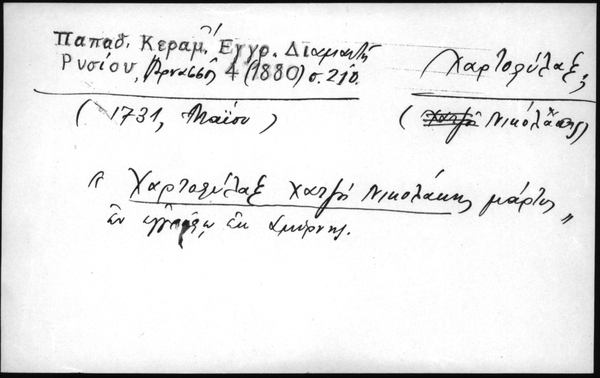 Παπαδ. Κεραμ, Εγγρ. Διαμαντῆ
Ρυσίου, Παρνασσὸς 4 (1880) σ. 210.
Χαρτοφύλαξ,
(1731, Μαΐου)
(χατζῆ Νικολάκης)
" Χαρτοφύλαξ χατζῆ Νικολάκης μάρτυς "
ἐν ἐγγράφῳ ἐκ Σμύρνης.